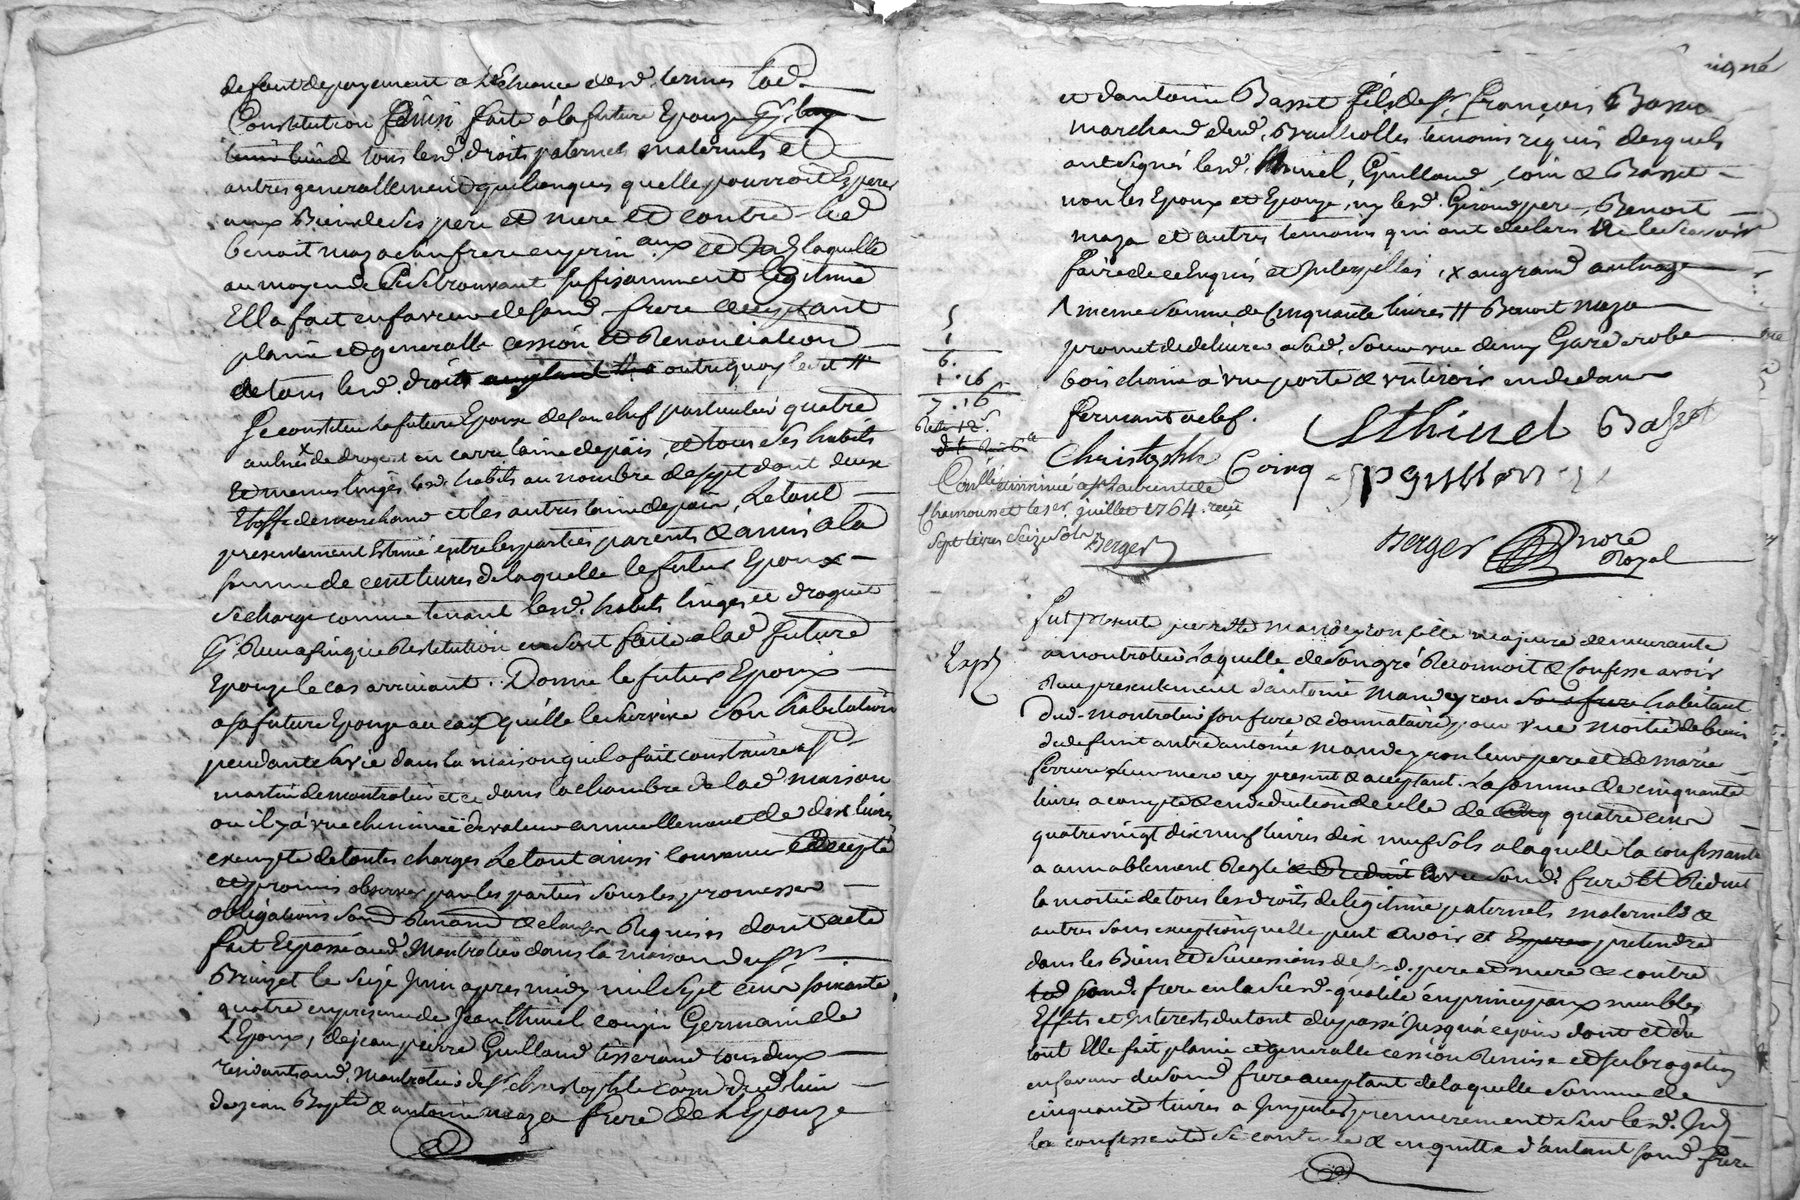 defaut de payement a l'Echeance desd. termes lad.
Constitution faite à la future Epouze
tous lesd. droits paternels maternels et
autres generallement quelconques quelle pourroit Esperer
aux Biens de ses pere et mere et contre led
benoit maza son frere en prin.aux et laquelle
au moyen de se trouvant sufisamment legitimé
Ella fait en faveur de sond. frere acceptant
plaine et generalle cession et Renonciation
de tous lesd. droits outre quoy
Se constitue la future Epouse de son chef particulier quatre
aulnes de droguet en carre laine de païs, et tous ses habits
et menus linges lesd. habits au nombre de sept dont deux
Etoffe de marchand et les autres laine de païs, Le tout
presentement Estimé entre les parties parents & amis a la
somme de cent livres de laquelle le futur Epoux
se charge comme tenant lesd. habits linges et droguet
Restitution en soit faite a lad future
Epouze le cas arrivant. Donne le futur Epoux
a sa future Epouze au cas qu'elle le survive son habitation
pendant sa vie dans la maison qu'il a fait construire
martin de montrotier et ce dans la chambre de lad maison
ou il y a une cheminée de valeur annuellement de dix livres
exempte de toutes charges Le tout ainsi convenu accepté
et promis observer par les parties sous les promesses
obligations Soud Renond & clauses Requises dont acte
fait et passé aud. Montrotier dans la maison du sr.
Bruizet le seize juin apres midy mil sept cent soixante
quatre en presence de Jean Thinel couzin Germain de
L'Epoux, de jean pierre Guilland tisserand tous deux
residants aud. Montrotier de sr. christophle
de jean Bapte & antoine maza frere de l'Epouze
signé
et d'antoine Basset fils de sr. françois Basset
marchand dud. Brussiolles temoins requis desquels
ont signés lesd. thinel, Guilland, coin & Basset
non les Epoux et Epouze, ny lesd. Giroud pere, Benoit
maza et autres temoins qui ont declaré ne le sçavoir
faire de ce Enquis et Interpellés, x au grand aulnage
meme somme de Cinquante livres # Benoit maza
promet de delivrer a sad. soeur une demy Garderobe
bois chaine à une porte & un tiroir en dedans
fermant a clef.
5
1
6.
1.16
7.16
Sthinel Basset
Christophle Coing
jpguillon
Controllé et insinué a st Laurent de
Chamousset le 1er. juillet 1764. reçu
sept livres seize sols
Berger
Berger nore
Royal
Expt
fut presente pierrette mandeyron fille majeure demeurante
a montrotier laquelle de son gré Reconnoit & Confesse avoir
Reçu presentement d'antoine Mandeyron son frere habitant
dud. montrotier son frere & donnataire pour une moitié de biens
de defunt autre antoine Mandeyron leur pere et de marie
ferriere leur mere icy present & acceptant. La somme de cinquante
livres a compte & en deduction de celle de quatre cent
quatre vingt dix neuf livres dix neuf sols a laquelle la confessante
a amiablement Reglé avec sond. frere et Reduit
la moitié de tous les droits de legitime paternels maternels &
autres sans exception quelle peut avoir et Esperer pretendre
dans les Biens et successions de sesd. pere et mere & contre
sond. frere en lad. qualité en principaux meubles
Effets et Interests du tout du passé Jusqu'à ce jour dont et du
tout Elle fait plaine et generalle cession Remise et subrogation
en faveur du sond. frere acceptant de laquelle somme de
cinquante livres a Imputer premierement sur lesd. Int
la confessante se contente & en quitte d'autant sond. frere